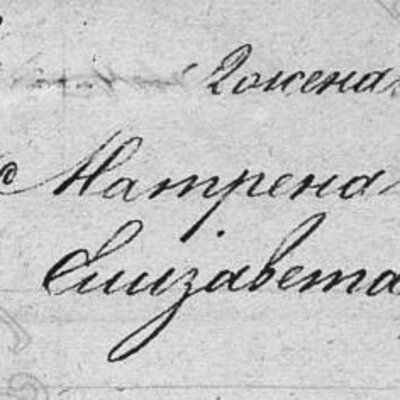 2 жена
Матрена
Елизавета